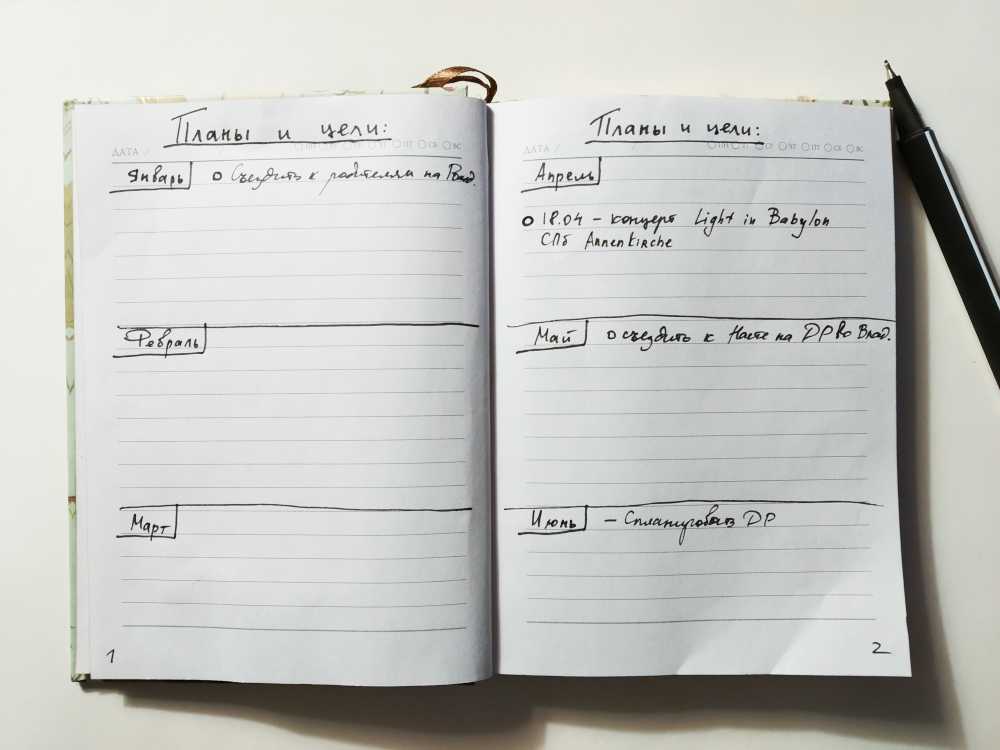 Планы и цели:
ДАТА / /
Январь
о Съездить к родителям на Рожд.
Февраль
Март
1
Планы и цели:
ДАТА / /
ПН ВТ СР ЧТ ПТ СБ ВС
Апрель
о 18.04 – концерт Light in Babylon
СПб Annenkirche
Май
о съездить к Насте на ДР во Влад.
Июнь
– Спланировать ДР
2